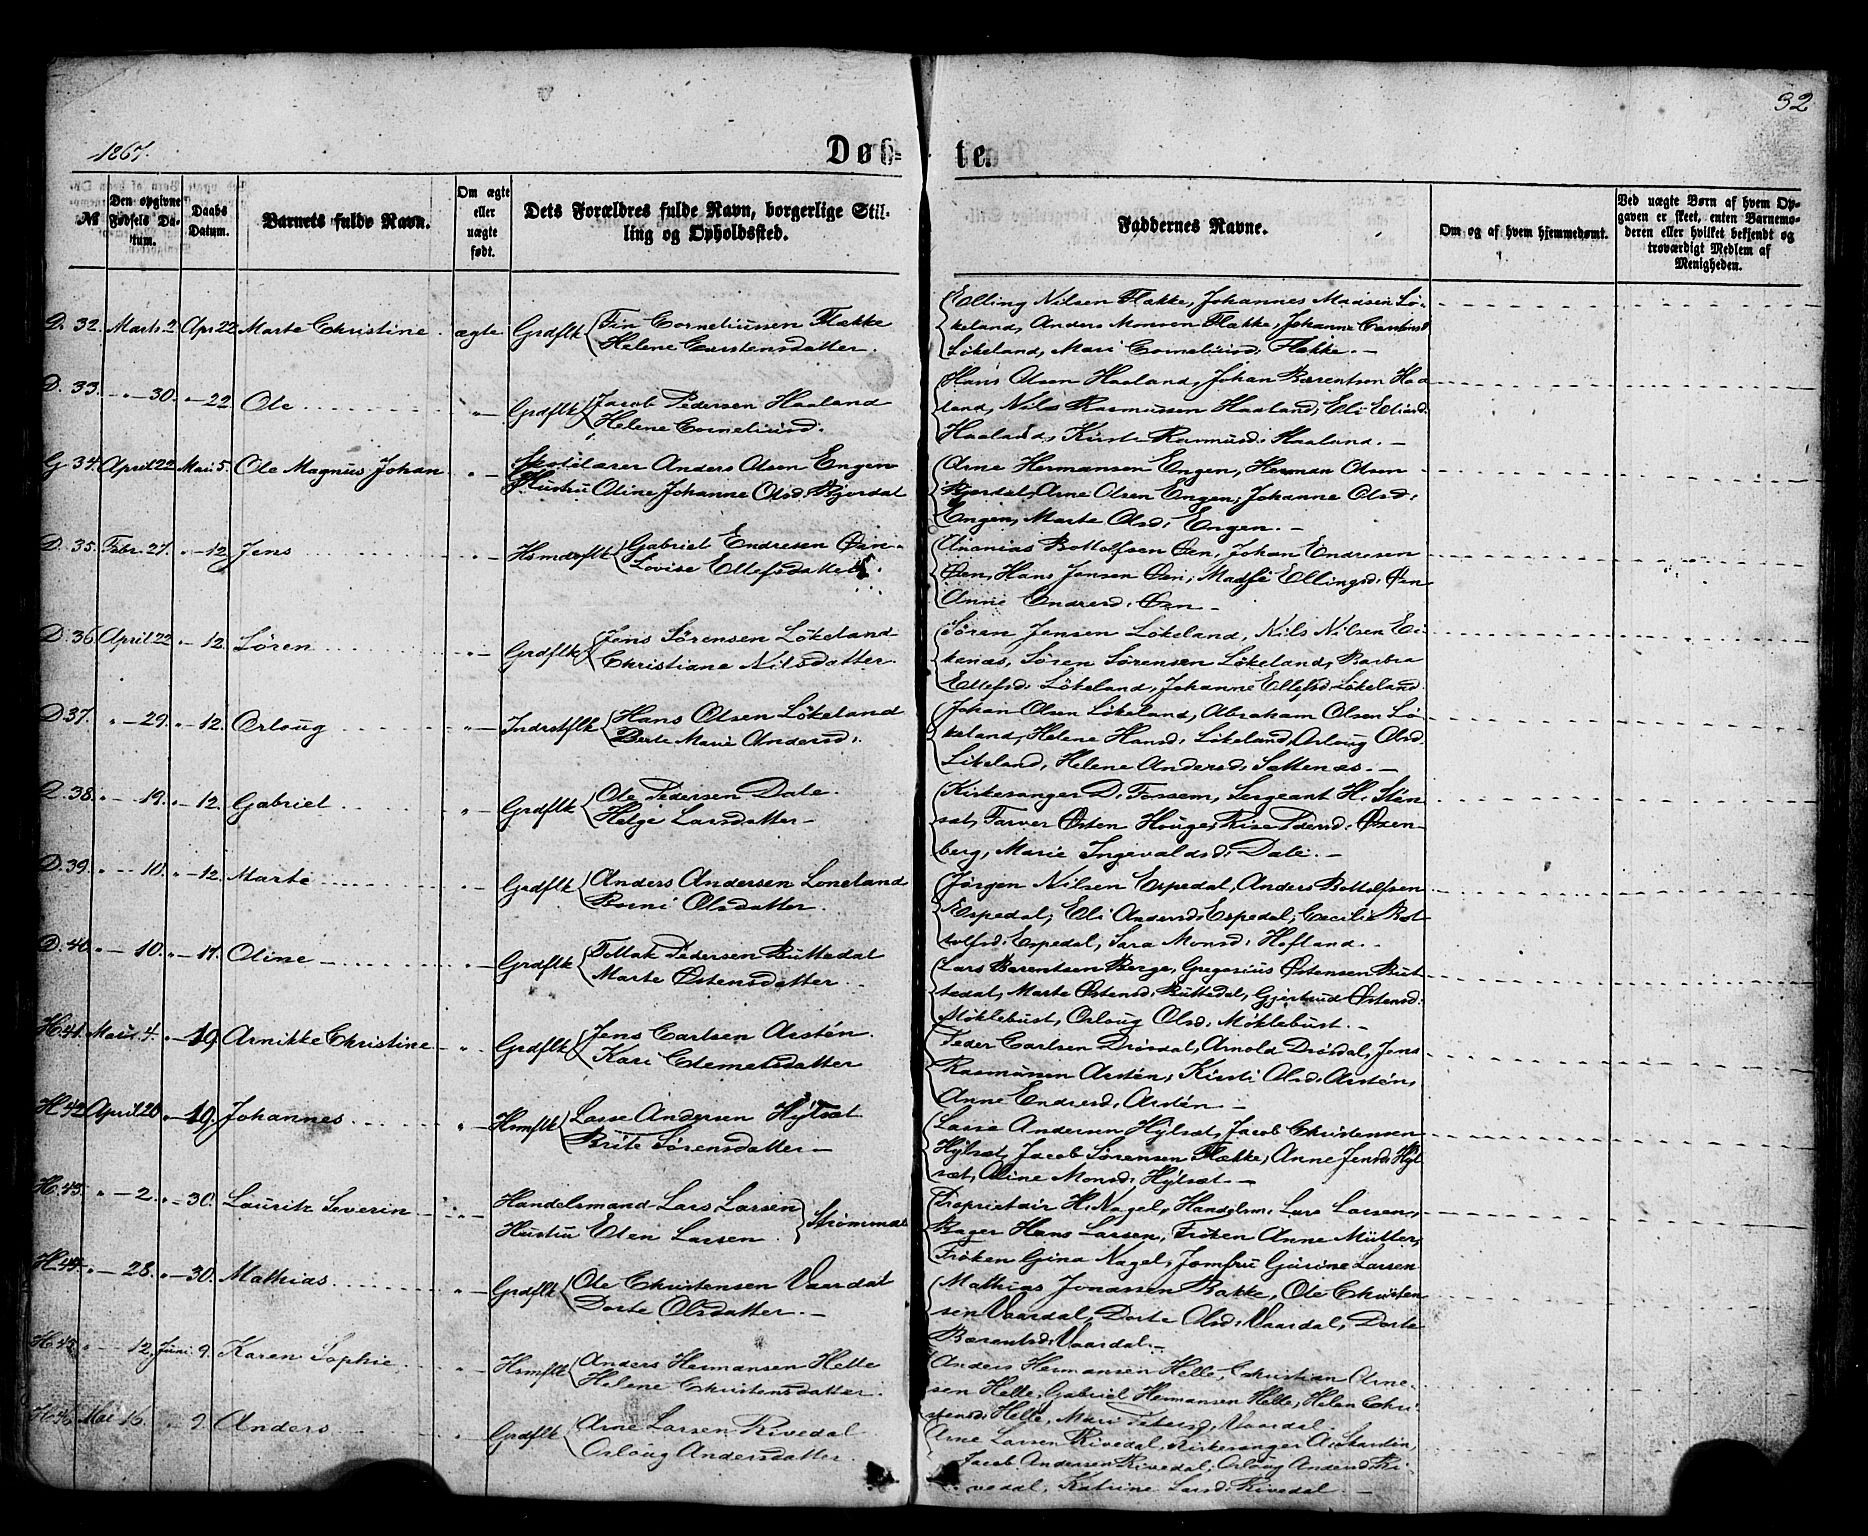 32
1867.
Døb=
te.
№
Den opgivne Fødsels Datum.
Daabs Datum.
Barnets fulde Navn.
Om ægte eller uægte født.
Dets Forældres fulde Navn, borgerlige Stilling og Opholdssted.
Faddernes Navne.
Om og af hvem hjemmedøbt.
Ved uægte Børn af hvem Opgaven er skeet, enten Barnemoderen eller hvilket bekjendt og troværdigt Medlem af Menigheden.
D. 32. Marts 2 Apr 22 Marte Christine. ægte Grdflk Fin Corneliussen Flække
Helene Carstensdatter.
Elling Nilsen Flække, Johannes Madsen Lø-
keland, Anders Monsen Flække, Johanne
Løkeland, Mari Corneliusd: Flække. –
D. 33. " – 30. " – 22 Ole " – Grdflk Jacob Pedersen Haaland
Helene Corneliusd:
Hans Olsen Haaland, Johan Barentsen Haa
land, Nils Rasmussen Haaland, Eli Eliasd:
Haaland, Kirst. Rasmusd: Haaland. –
G 34. April 22 Mai 5. Ole Magnus Johan " – Skolelærer Anders Olsen Engen
Hustru Oline Johanne Olsd: Bjordal
Arne Hermansen Engen, Herman Olsen
Bjordal, Arne Olsen Engen, Johanne Olsd:
Engen, Marte Olsd: Engen. –
D. 35. Febr. 27. " – 12. Jens " – Hsmdsflk Gabriel Endresen Øen
Lovise Ellefsdatter.
Ananias Bottolfsen Øen, Johan Endresen
Øen, Hans Jensen Øen, Madsi Ellingsd: Øen
Anne Endresd: Øen –
D. 36. April 22 " – 12. Søren " – Grdflk Jens Sørensen Løkeland
Christiane Nilsdatter.
Søren Jensen Løkeland, Nils Nilsen Ei-
kenæs, Søren Sørensen Løkeland, Barbra
Ellefsd: Løkeland, Johanne Ellefsd: Løkeland.
D 37. " – 29. " – 12. Orloug " – Indrstflk Hans Olsen Løkeland
Berte Marie Andersd:
Johan Olsen Løkeland, Abraham Olsen Lø-
keland, Helene Hansd: Løkeland, Orloug Olsd.
Løkeland, Helene Andersd: Sættenæs. –
D. 38. " – 19. " – 12. Gabriel " – Grdflk Ole Pedersen Dale.
Helge Larsdatter –
Kirkesanger D. Fossem, Sergeant H. Sten-
sæt, Farver Østen Houge, Risa Pdersd: Øxen-
berg, Marie Ingevaldsd: Dale. –
D. 39. " – 10. " – 12. Marte " – Grdflk Anders Andersen Loneland
Borni Olsdatter.
Jørgen Nilsen Espedal, Anders Bottolfsen
Espedal, Eli Andersd: Espedal, Cecilie Bot-
tolfsd: Espedal, Sara Monsd: Hofland. –
D. 40. " – 10. " – 17. Oline " – Grdflk Tollak Pedersen Buttedal
Marte Østensdatter.
Lars Barentsen Berge, Gregorius Østensen But-
tedal, Marte Østensd: Buttedal, Gjertrud Østensd:
Møklebust, Orloug Olsd: Møklebust. –
H. 41. Mai 4. " – 19. Arnikke Christine " – Grdflk Jens Carlsen Arstén.
Kari Clemetsdatter
Peder Carlsen Drösdal, Arnold Drösdal, Jens
Rasmussen Arstén, Kirsti Olsd: Arstén,
Anne Endresd: Arstén –
H. 42. April 20 " – 19. Johannes. " Hsmflk Lasse Andersen Hÿlsæt
Brite Sørensdatter –
Lasse Andersen Hÿlsæt, Jacob Christensen
Hÿlsæt, Jacob Sørensen Flække, Anne Jensd: Hÿl
sæt, Oline Monsd: Hÿlsæt –
H. 43. " – 2. " – 30. Lauritz Severin " – Handelsmand Lars Larsen
Hustru Ellen Larsen. Strømmen
Proprietair H. Nagel, Handelsm: Lars Larsen,
Bager Hans Larsen, Frøken Anne Müller,
Frøken Gina Nagel, Jomfru Gurine Larsen
H. 44. " – 28. " – 30. Mathias " – Grdflk Ole Christensen Vaardal
Dorte Olsdatter. –
Mathias Jonassen Bakke, Ole Christen
sen Vaardal, Dorte Olsd: Vaardal, Dorte
Barentsd: Vaardal. –
H. 45. " – 12. Juni 9. Karen Sophie " Hsmflk Anders Hermansen Helle
Helene Christensdatter.
Anders Hermansen Helle, Christian Arne-
sen Helle, Gabriel Hermansen Helle, Helen Chri-
stensd: Helle, Mari Petersd: Vaardal.
H. 46. Mai 16. " 9. Anders " Grdflk Arne Larsen Rivedal
Orloug Andersdatter.
Arne Larsen Rivedal, Kirkesanger A. Skarstén,
Jacob Andersen Rivedal, Orloug Andersd: Ri-
vedal, Katrine Larsd: Rivedal. –